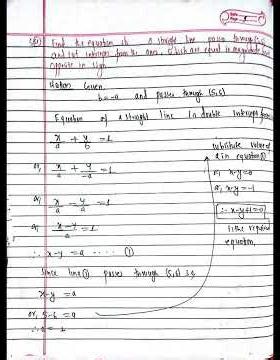 Find the equation of a straight line passes through (5,6)
and cut intercepts from the axes, which are equal in magnitude but
opposite in sign.
Given,
b=-a and passes through (5,6)
Equation of a straight line in double intercept form
x/a + y/b = 1
or, x/a + y/-a = 1
or, x/a - y/a = 1
or, x-y/a = 1
∴ x-y = a ..... (1)
Since line (1) passes through (5,6) so,
x-y = a
or, 5-6 = a
∴ a = 
substitute value of
a in equation (1)
x-y=-1
∴ x-y+1=0
is the required
equation.